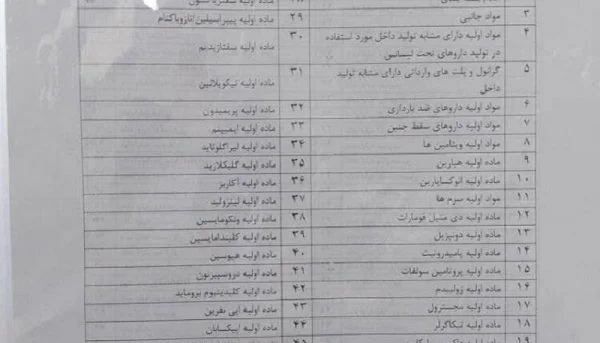 ۳ مواد جانبی
۴ مواد اولیه دارای مشابه تولید داخل مورد استفاده
در تولید داروهای تحت لیسانس
۵ گرانول و پلت های وارداتی دارای مشابه تولید
داخل
۶ مواد اولیه داروهای ضد بارداری
۷ مواد اولیه داروهای سقط جنین
۸ مواد اولیه ویتامین ها
۹ ماده اولیه هپارین
۱۰ ماده اولیه انوکساپارین
۱۱ مواد اولیه سرم ها
۱۲ ماده اولیه دی متیل فومارات
۱۳ ماده اولیه دونپزیل
۱۴ ماده اولیه پامیدرونیت
۱۵ ماده اولیه پروتامین سولفات
۱۶ ماده اولیه زولپیدم
۱۷ ماده اولیه مجسترول
۱۸ ماده اولیه تیکاگرلر
۱۹ ماده اولیه
۲۹ ماده اولیه پیپراسیلین/تازوباکتام
۳۰ ماده اولیه سفتازیدیم
۳۱ ماده اولیه تیکوپلانین
۳۲ ماده اولیه پریمیدون
۳۳ ماده اولیه ایمیپنم
۳۴ ماده اولیه لیراگلوتاید
۳۵ ماده اولیه گلیکلازید
۳۶ ماده اولیه آکاربز
۳۷ ماده اولیه لینزولید
۳۸ ماده اولیه ونکومایسین
۳۹ ماده اولیه کلیندامایسین
۴۰ ماده اولیه هیوسین
۴۱ ماده اولیه دروسپیرنون
۴۲ ماده اولیه کلیدینیوم بروماید
۴۳ ماده اولیه اپی نفرین
۴۴ ماده اولیه اپیکسابان
۴۵